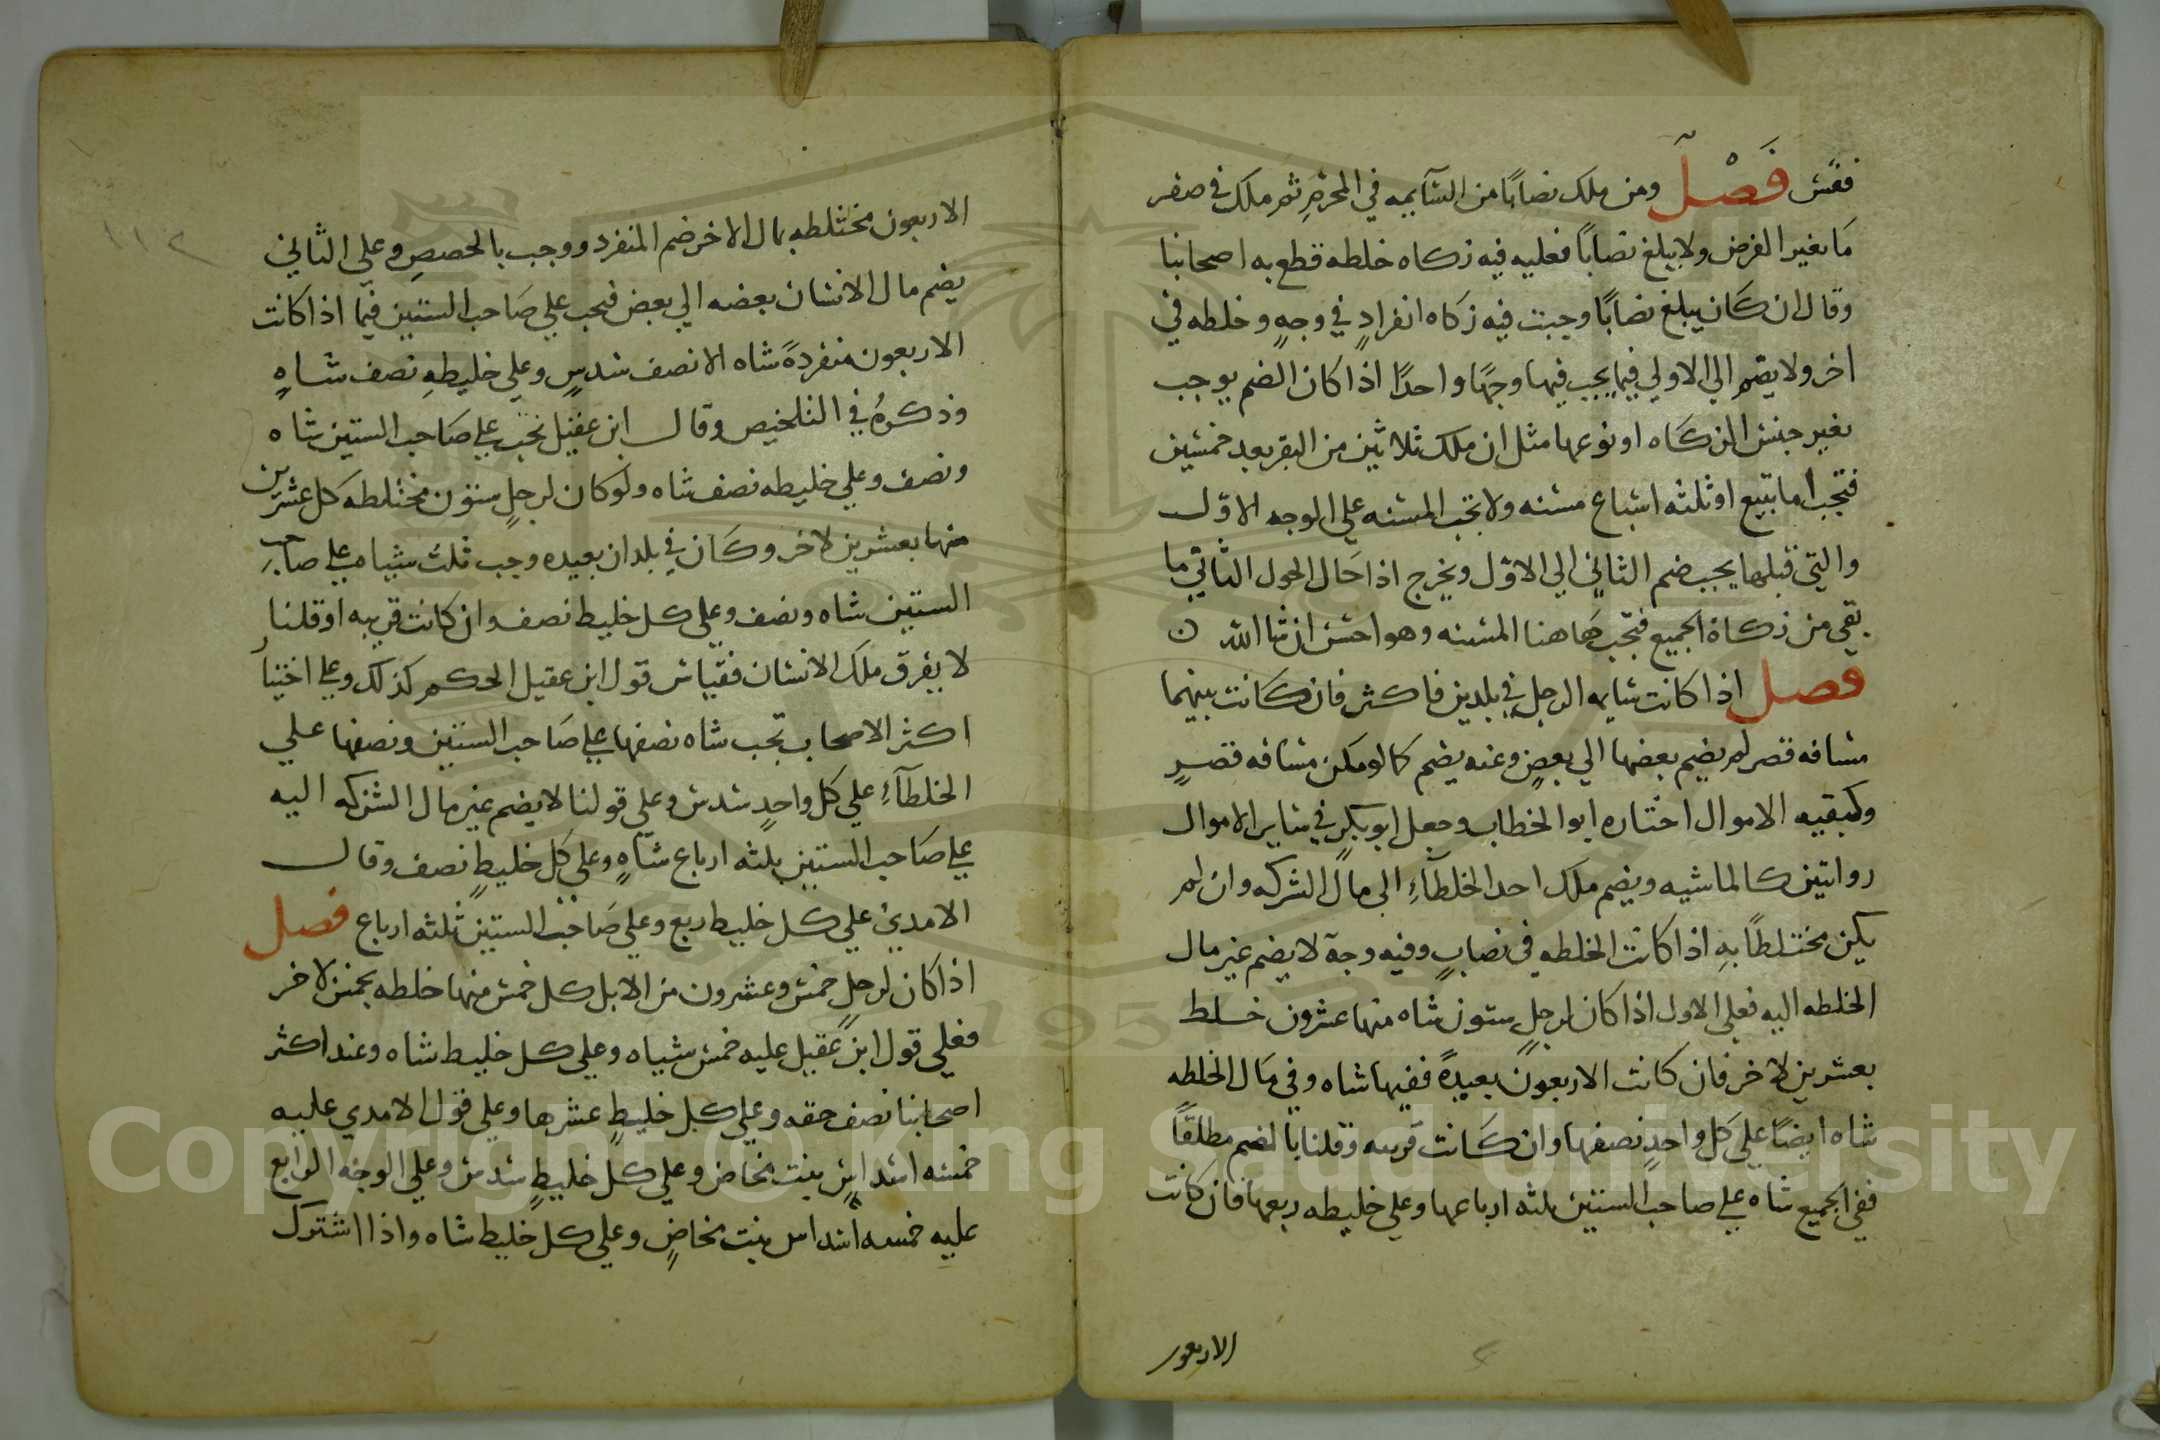 فقس فَصْل ومن ملك نصابًا من السآيمه في المحرم ثم ملك في صفر
مَا يغير الفرض ولا يبلغ نصابًا فعليه فيه زكاه خلطه قطع به اصحابنا
وقال ان كَان يبلغ نصابًا وجبت فيه زكاه انفرادٍ في وجهٍ وخلطه في
اخر ولا يضم الي الاولي فيما يجب فيها وجهًا واحدًا اذا كان الضم يوجب
تغير جنس الزكَاه او نوعها مثل ان ملك ثلاثين من البقر بعد خمسين
فتجب اما تبيع او ثلثه اتباع مسنه ولا تجب المسنه علي الوجه الاول
والتي قبلها يجب ضم الثاني الي الاوّل ويخرج اذا حَال الحول الثاني ما
بقي من زكاة الجميع فتجب هَاهنا المسنه وهو احسن ان شا الله ن
فصل اذا كانت سايمه الرجل في بلدين فاكثر فان كَانت بينهما
مسافه قصر لم يضم بعضها الي بعضٍ وعنه يضم كما لو لم يكن مسافه قصرٍ
وكبقيه الاموال اختاره ابو الخطاب وجعل ابو بكر في ساير الاموال
روايتين كالماشيه ويضم ملك احد الخلطآءِ الي مال الشركه وان لم
يكن مختلطًا بهِ اذا كانت الخلطه في نصابٍ وفيه وجهٌ لا يضم غير مال
الخلطه اليه فعلي الاول اذا كان لرجلٍ ستون شاه منها عشرون خلط
بعشرين لاخر فان كانت الاربعون بعيدةً ففيها شاه وفي مَال الخلطه
شاه ايضًا علي كل واحدٍ نصفها وان كَانت قريبه وقلنا بالضم مطلقًا
ففي الجميع شاه علي صاحب الستين ثلثه ارباعها وعلي خليطه ربعها فان كانت
الاربعون
١١٢
الاربعون مختلطه بمال الاخر ضم المنفرد ووجب بالحصصِ وعلي الثاني
يضم مال الانسان بعضه الي بعض فيجب علي صَاحب الستين فيما اذا كانت
الاربعون منفردةً شاه الا نصف سدسٍ وعلي خليطهِ نصف شاهٍ
وذكرهُ في التلخيص وقال ابن عقيل تجب علي صَاحب الستين شاه
ونصف وعلي خليطه نصف شاه ولو كان لرجلٍ ستون مختلطه كل عشرين
منها بعشرين لاخر وكَان في بلدان بعيده وجب ثلث شياه علي صاحب
الستين شاه ونصف وعلي كل خليط نصف وان كانت قريبه او قلنا
لا يفرق ملك الانسان فقياس قول ابن عقيل الحكم كذلك وعلي اختيار
اكثر الاصحاب تجب شاه نصفها علي صَاحب الستين ونصفها علي
الخلطآءِ علي كل واحدٍ سدس وعلي قولنا لا يضم غير مال الشركه اليه
علي صَاحب الستين ثلثه ارباع شاهٍ وعلي كل خليطٍ نصف وقال
الامدي علي كل خليط ربع وعلي صَاحب الستين ثلثه ارباع فصل
اذا كان لرجلٍ خمس وعشرون من الابل كل خمس منها خلطه بخمس لاخر
فعلي قول ابن عقيل عليه خمس شياه وعلي كل خليط شاه وعند اكثر
اصحابنا نصف حقه وعلي كل خليطٍ عشرها وعلي قول الامدي عليه
خمسه اسداس بنت مخاض وعلي كل خليطٍ سدس وعلي الوجه الرابع
عليه خمسه اسداس بنت مخاضٍ وعلي كل خليط شاه واذا اشترك
Copyright © King Saud University
195